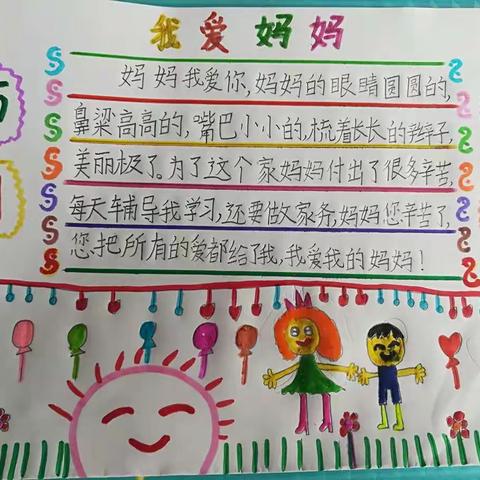 我爱妈妈
妈妈我爱你,妈妈的眼睛圆圆的,
鼻梁高高的,嘴巴小小的,梳着长长的辫子,
美丽极了。为了这个家妈妈付出了很多辛苦,
每天辅导我学习,还要做家务,妈妈您辛苦了,
您把所有的爱都给了我,我爱我的妈妈!